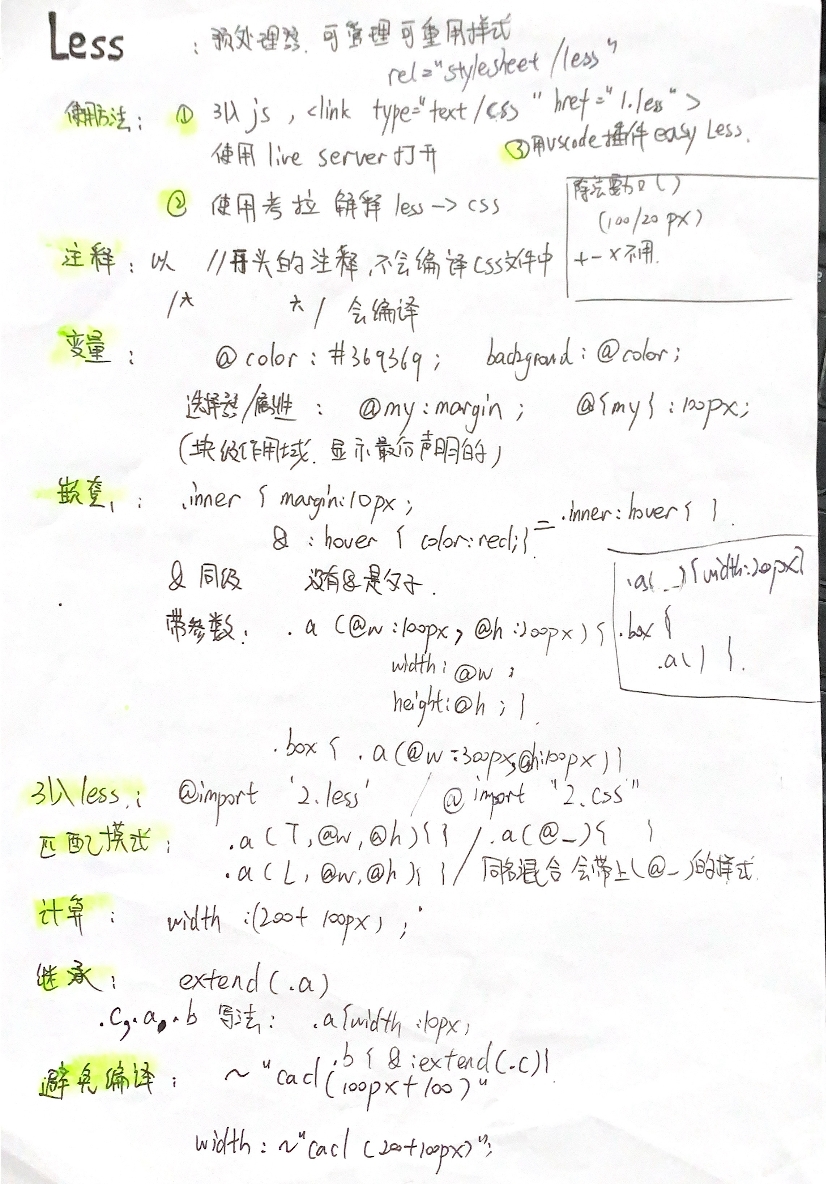 Less : 预处理器. 可管理可重用样式
rel="stylesheet/less"
使用方法: ① 引入js, <link type="text/css" href="1.less">
使用live server打开 ③用vscode插件easy Less.
② 使用考拉 解释 less → css
除法要加()
(100/20 px)
+ - × 不用.
注释: 以 //开头的注释,不会编译css文件中
/* */ 会编译
变量: @color: #369369; background: @color;
选择器/属性: @my: margin; @{my}: 100px;
(块级作用域. 显示最后声明的)
嵌套: .inner { margin:10px;
&:hover { color:red;} = .inner:hover { }.
& 同级 没有&是父子.
.a(_){width:20px}
.box {
.a() }.
带参数: .a (@w:100px, @h:200px) {
width: @w ;
height: @h ; }
.box { .a(@w:300px,@h:100px)}
引入less: @import '2.less' / @import "2.css"
匹配模式: .a(T,@w,@h){} / .a(@_){ }
.a(L,@w,@h){ } / 同名混合会带上(@_)的样式
计算: width:(200+100px);
继承: extend(.a)
.c,.a,.b 写法: .a{width:10px;
.b { &:extend(.c)}
避免编译: ~"cacl(100px+100)"
width: ~"cacl (200+100px)";